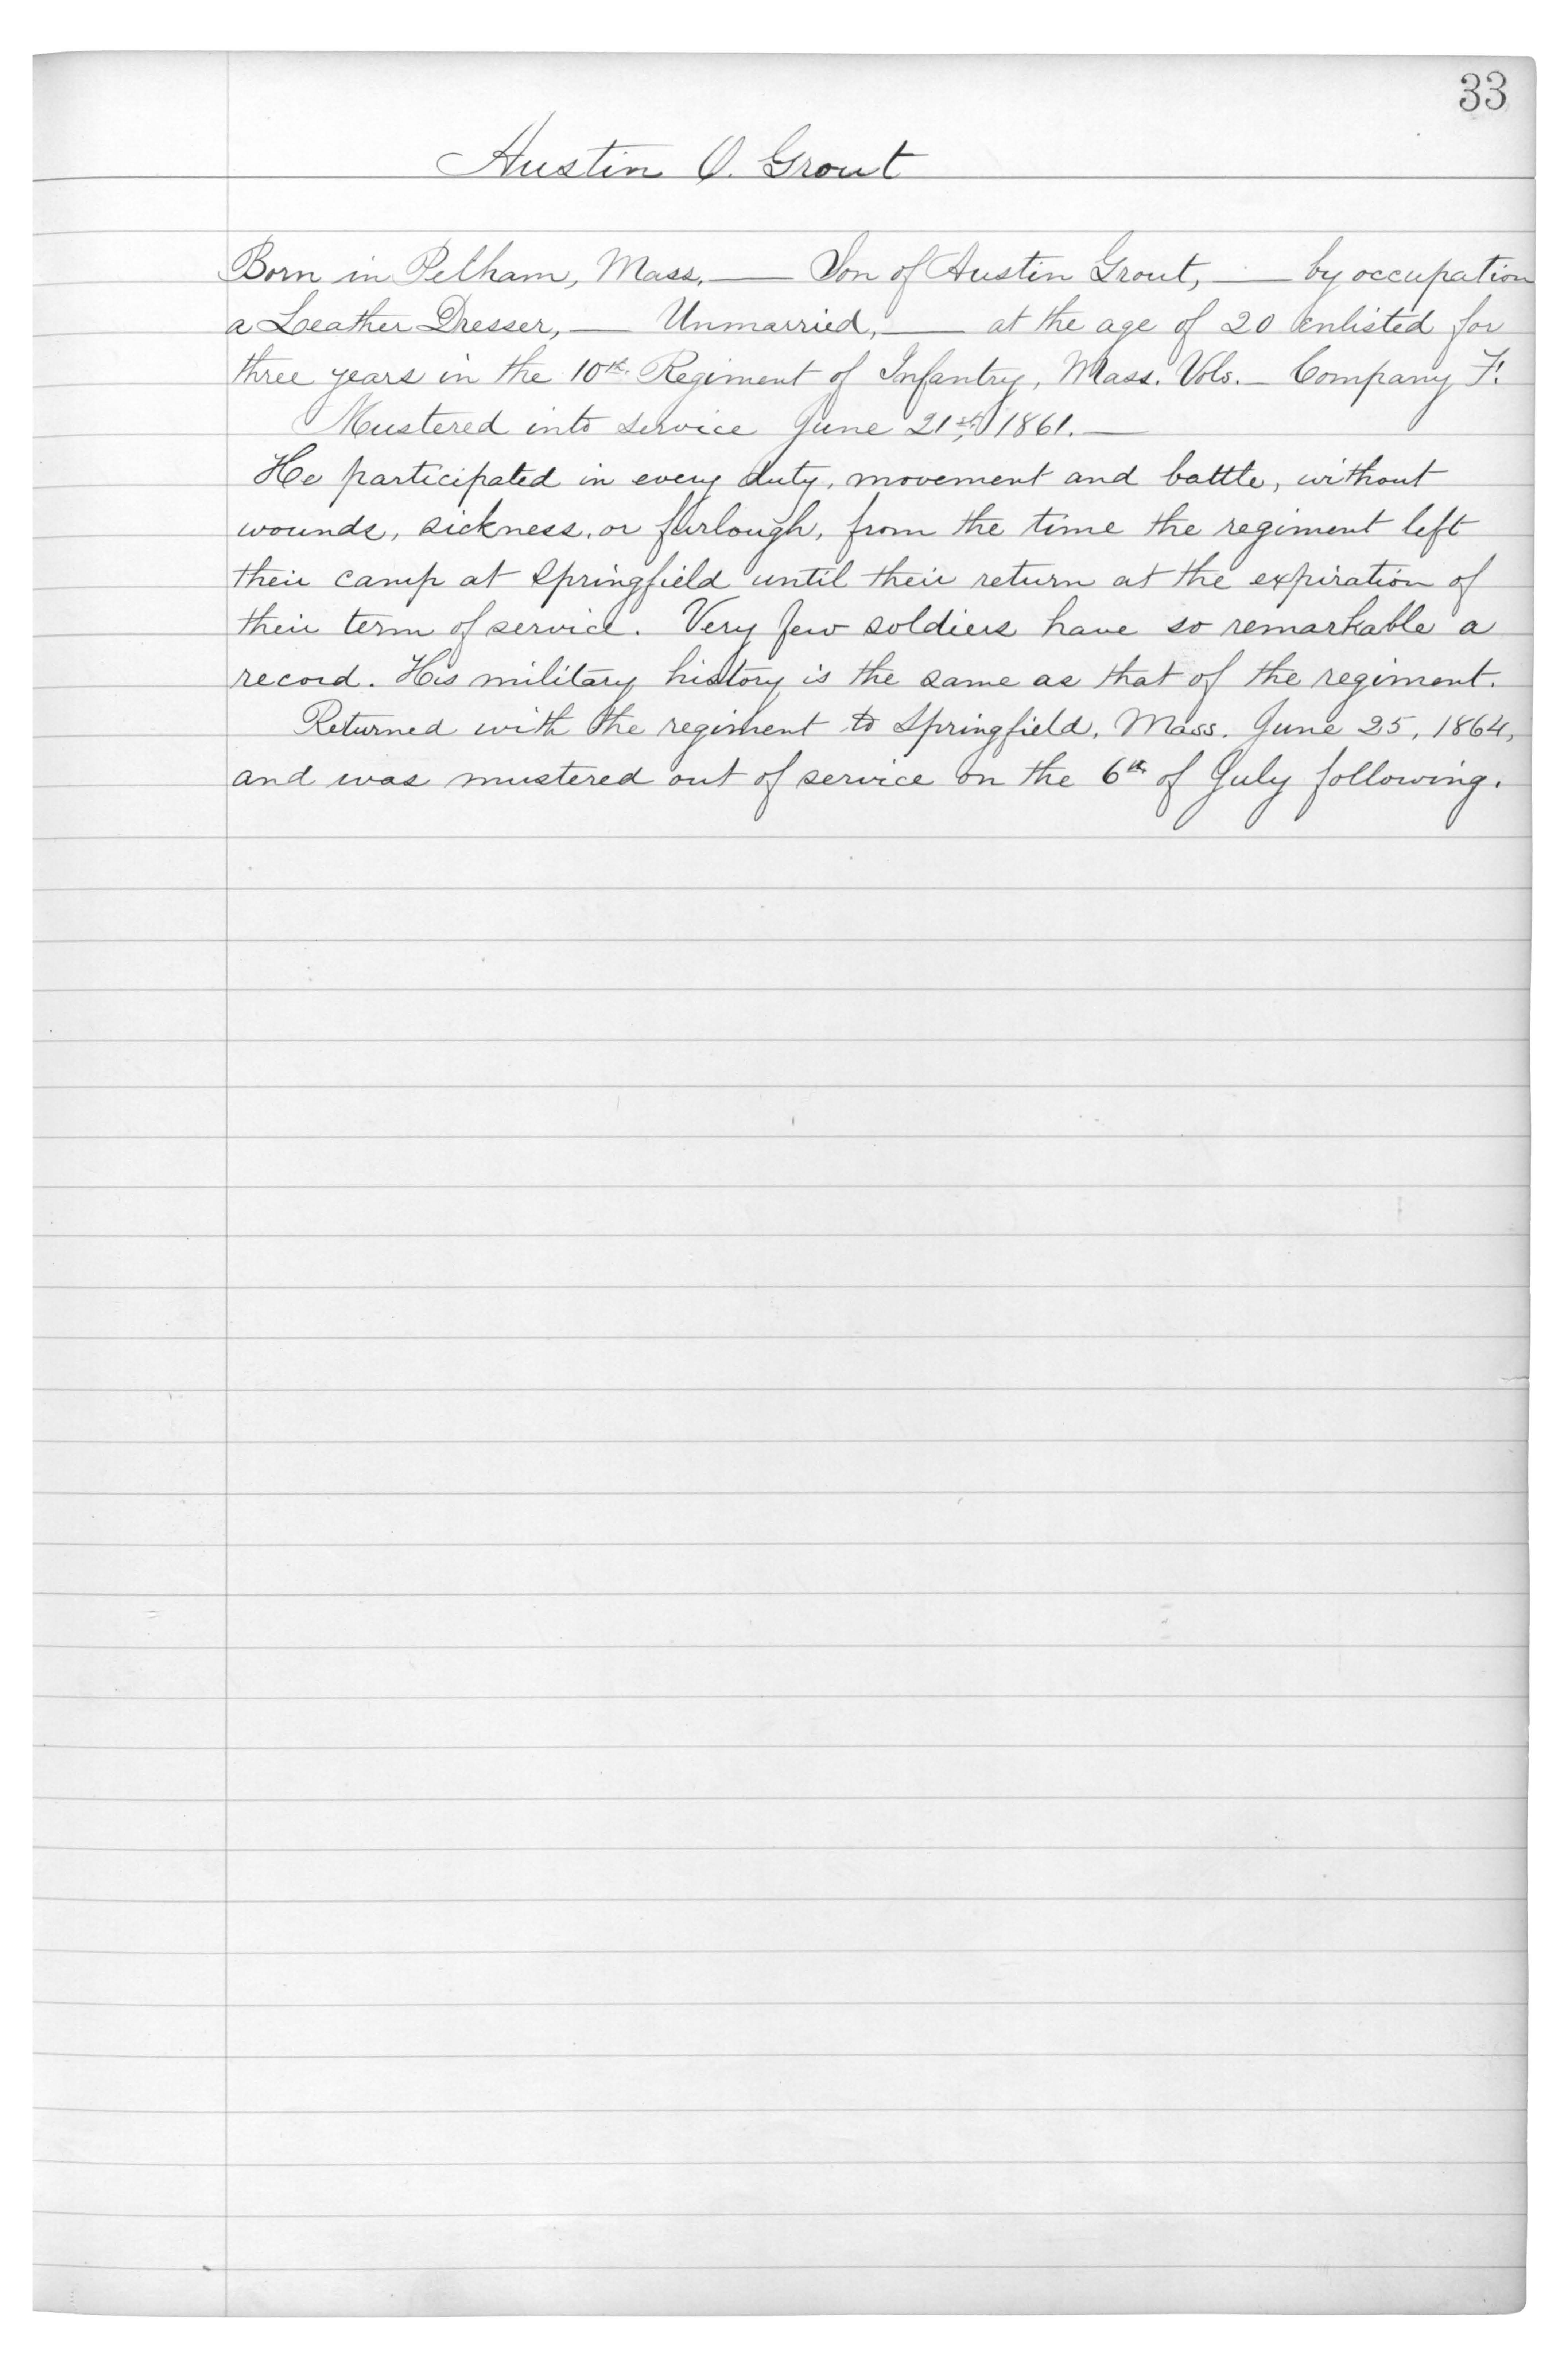 33
Austin O. Grout
Born in Pelham, Mass, — Son of Austin Grout, — by occupation
a Leather Dresser, — Unmarried, — at the age of 20 enlisted for
three years in the 10th Regiment of Infantry, Mass. Vols. — Company F.
Mustered into service June 21st, 1861. —
He participated in every duty, movement and battle, without
wounds, sickness, or furlough, from the time the regiment left
their camp at Springfield until their return at the expiration of
their term of service. Very few soldiers have so remarkable a
record. His military history is the same as that of the regiment.
Returned with the regiment to Springfield, Mass. June 25, 1864,
and was mustered out of service on the 6th of July following.